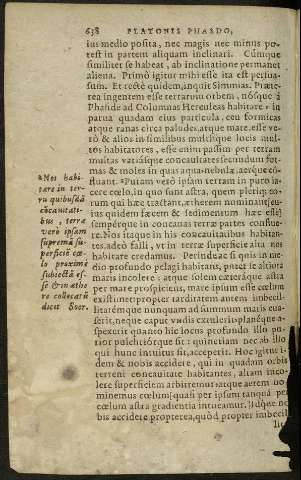 638 PLATONIS PHAEDO,
ius medio posita, nec magis nec minus po-
test in partem aliquam inclinari. Cúmque
similiter se habeat, ab inclinatione permanet
aliena. Primò igitur mihi esse ita est persua-
sum. Et rectè quidem, inquit Simmias. Præte-
rea ingentem esse terrarum orbem, nósque à
Phaside ad Columnas Herculeas habitare in
parua quadam eius particula, ceu formicas
atque ranas circa paludes, atque mare. esse ve-
rò & alios in similibus mulísque locis mul-
tos habitatores, esse enim passim per terram
multas variásque concauitates secundum for-
mas & moles in quas aqua, nebula, aerque cô-
fluant. Puram verò ipsam terram in puro ia-
cere cœlo, in quo sunt astra, quem plerique eo-
rum qui hæc tractant, ætherem nominant, cu-
ius quidem fæcem & sedimenum hæc esse
sempérque in concauas terræ partes conflue-
re. Nos itaque in his concauitatibus habitan-
tes, adeò falli, vt in terræ superficie alta nos
habitare credamus. Perinde ac si quis in me-
dio profundo pelagi habitans, putet se alto
maris incolere: atque solem cæteráque astra
per mare prospiciens, mare ipsum esse cœlum
existimet: propter tarditatem autem imbecil-
litatémque nunquam ad summum maris eua-
serit, neque caput vndis extulerit, planéque a-
spexerit quanto hic locus profundo illo pu-
rior pulchriórque sit: quinetiam nec ab illo
qui hunc intuitus sit, acceperit. Hoc igitur i-
dem & nobis accidere, qui in quadam orbis
terreni concauitate habitantes, altam inco-
lere superficiem arbitremur: atque aerem no-
minemus cœlum, quasi per ipsum tanquã per
cœlum astra gradientia intueamur. Idque no-
bis accidere propterea, quòd propter imbecil-
lit
Nos habi-
tare in ter-
ræ quibusdã
cõcauitati-
bus, terrã
verò ipsam
supremã su-
perficiẽ cœ-
lo proximè
subiectã es-
se & in æthe
re collocatã
dicit Socr.